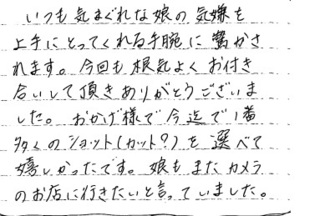 いつも気まぐれな娘の気嫌を
上手にとってくれる手腕に驚かさ
れます。今回も根気よくお付き
合いして頂きありがとうございま
した。おかげ様で今迄で1番
多くのショット(カット?)を選べて
嬉しかったです。娘もまたカメラ
のお店に行きたいと言っていました。